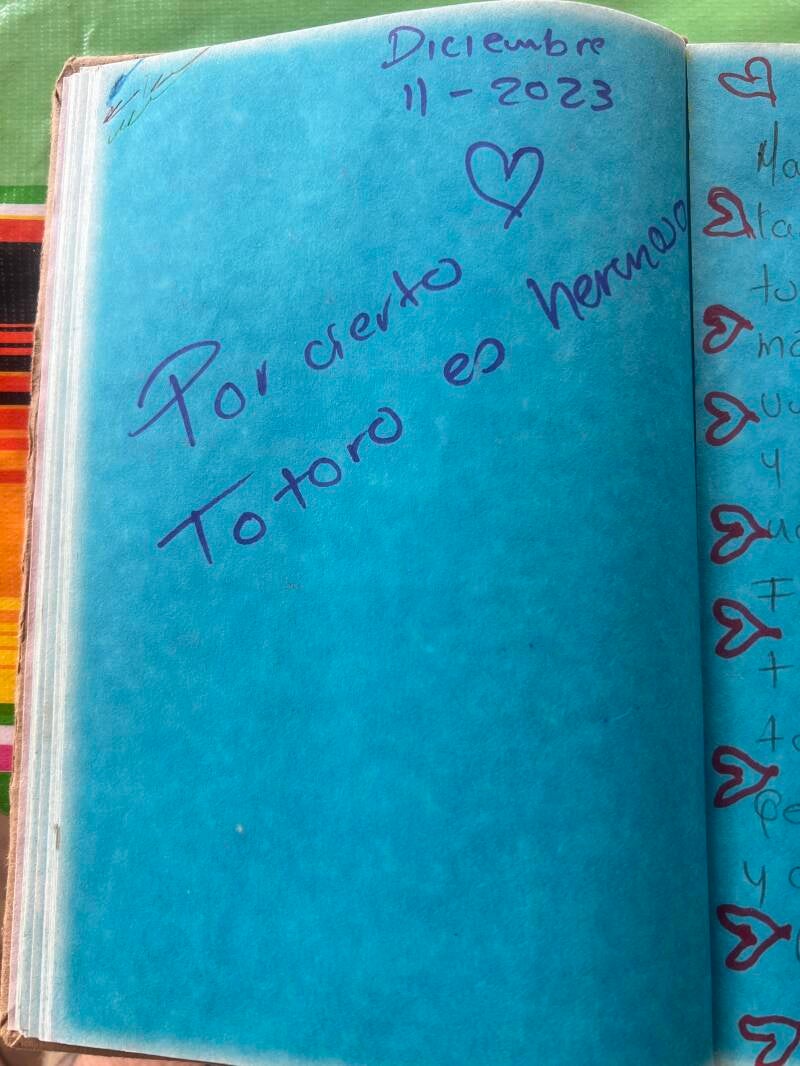 Diciembre
11 - 2023
Por cierto
Totoro es hermoso
Ma
ta
tu
ma
y
t
y